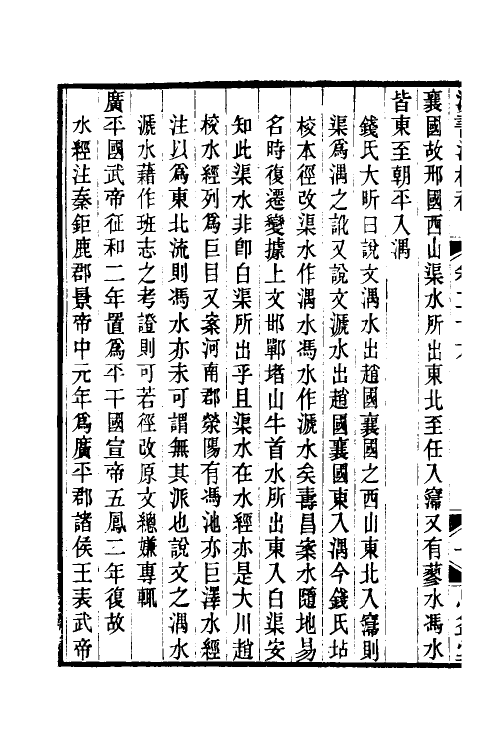 襄國故邢國西山渠水所出東北至任入㴾又有蓼水馮水
皆東至朝平入湡
錢氏大昕曰說文湡水出趙國襄國之西山東北入㴾則
渠爲湡之訛又說文㴲水出趙國襄國東入湡今錢氏坫
校本徑改渠水作湡水馮水作㴲水矣壽昌案水隨地易
名時復遷變據上文邯鄲堵山牛首水所出東入白渠安
知此渠水非卽白渠所出乎且渠水在水經亦是大川趙
校水經列爲巨目又案河南郡滎陽有馮池亦巨澤水經
注以爲東北流則馮水亦未可謂無其派也說文之湡水
㴲水藉作班志之考證則可若徑改原文總嫌專輒
廣平國武帝征和二年置爲平干國宣帝五鳳二年復故
水經注秦鉅鹿郡景帝中元年爲廣平郡諸侯王表武帝